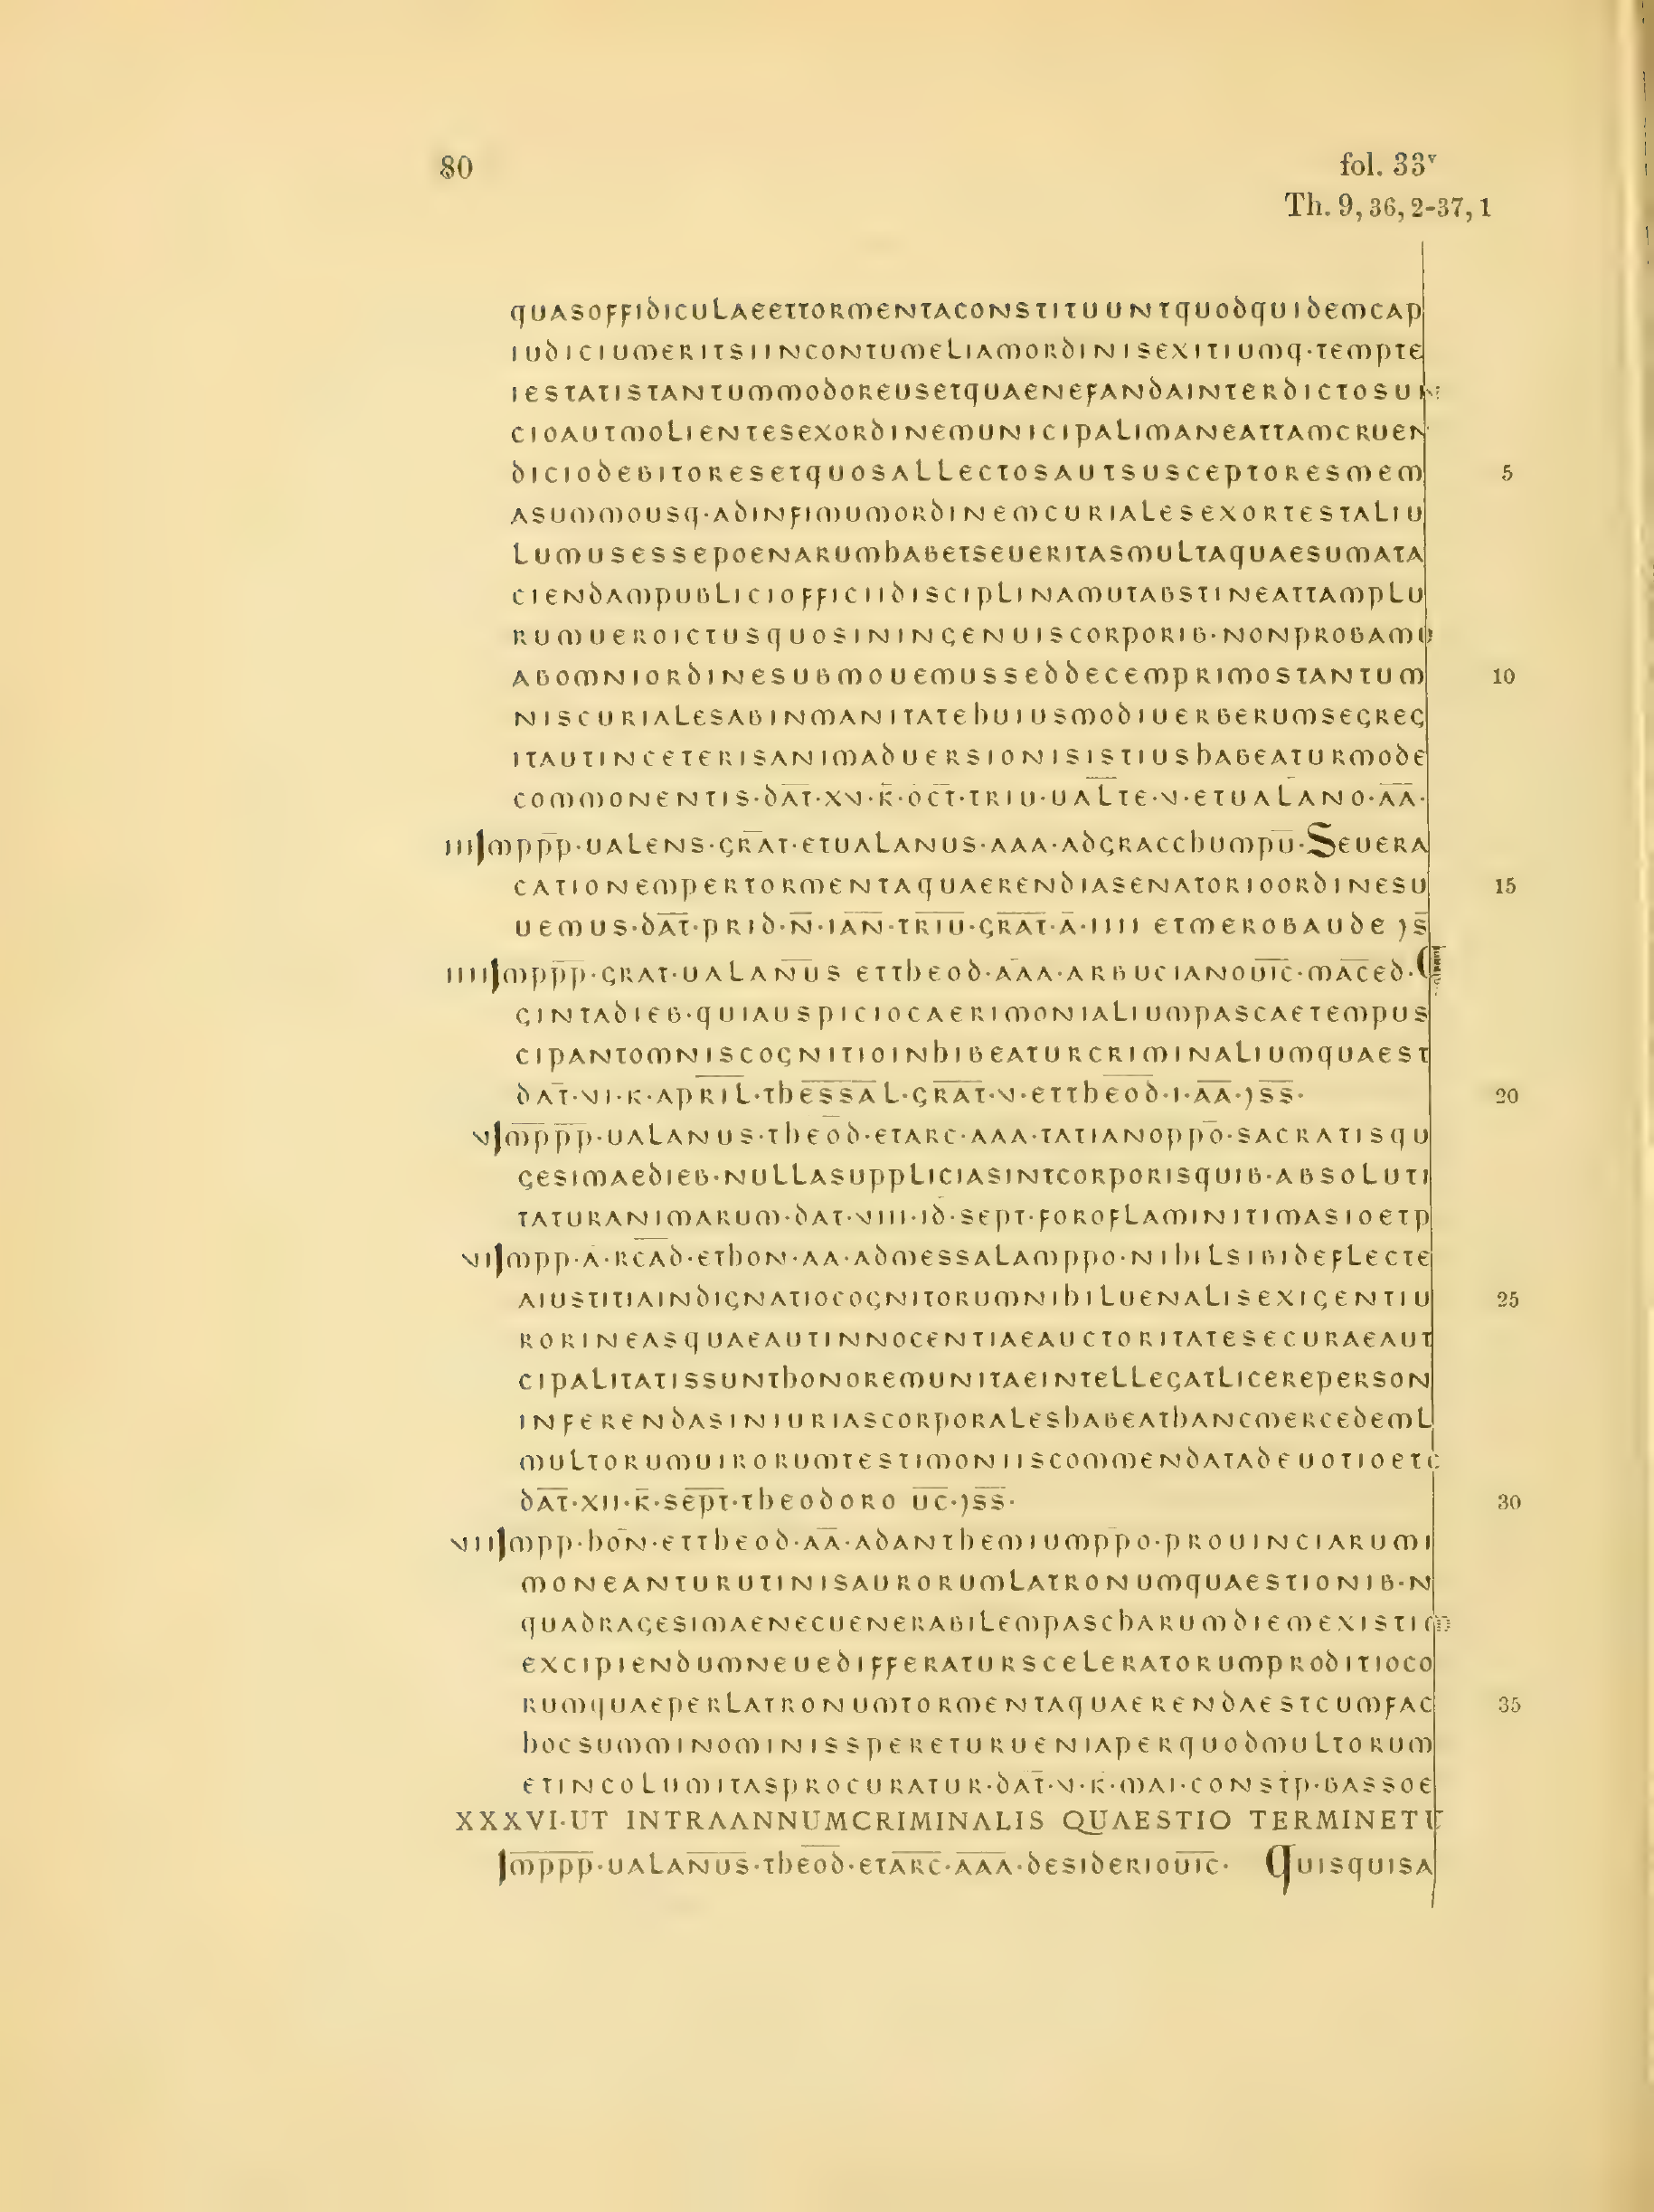 80
fol. 33v
Th. 9, 36, 2-37, 1
QUASOFFIDICULAEETTORMENTACONSTITUUNTQUODQUIDEMCAP
IUDICIUMERITSIINCONTUMELIAMORDINISEXITIUMQ·TEMPTE
IESTATISTANTUMMODOREUSETQUAENEFANDAINTERDICTOSU
CIOAUTMOLIENTESEXORDINEMUNICIPALIMANEATTAMCRUEN
DICIODEBITORESETQUOSALLECTOSAUTSUSCEPTORESMEM 5
ASUMMOUSQ·ADINFIMUMORDINEMCURIALESEXORTESTALIU
LUMUSESSEPOENARUMHABETSEUERITASMULTAQUAESUMATA
CIENDAMPUBLICIOFFICIIDISCIPLINAMUTABSTINEATTAMPLU
RUMUEROICTUSQUOSININGENUISCORPORIB·NONPROBAMU
ABOMNIORDINESUBMOUEMUSSEDDECEMPRIMOSTANTUM 10
NISCURIALESABINMANITATEHUIUSMODIUERBERUMSEGREG
ITAUTINCETERISANIMADUERSIONISISTIUSHABEATURMODE
COMMONENTIS·DA̅T̅·XV·K̅·OC̅T̅·TRIU·UAL̅T̅E·V·ETUALANO·A̅A̅·
III IMPP̅P̅·UALENS·GR̅A̅T·ETUALANUS·AAA·ADGRACCHUMPU̅·SEUERA
CATIONEMPERTORMENTAQUAERENDIASENATORIOORDINESU 15
UEMUS·DA̅T̅·PRID·N̅·IA̅N̅·TR̅I̅U̅·GR̅A̅T̅·A̅·IIII ETMEROBAUDE ɔS̅
IIII IMP̅P̅P̅·GRAT·UALAN̅U̅S ETTHEOD·AAA·ARBUCIANOU̅I̅C̅·MA̅C̅ED·Q
GINTADIEB·QUIAUSPICIOCAERIMONIALIUMPASCAETEMPUS
CIPANTOMNISCOGNITIOINHIBEATURCRIMINALIUMQUAEST
DA̅T·VI·K·APR̅I̅L̅·THE̅S̅S̅A̅L·GR̅A̅T̅·V·ETTHE̅O̅D̅·I·A̅A̅·ɔS̅S̅· 20
V IM̅P̅P̅P̅·UALANUS·THEO̅D·ETARC·AAA·TATIANOPPO̅·SACRATISQU
GESIMAEDIEB·NULLASUPPLICIASINTCORPORISQUIB·ABSOLUTI
TATURANIMARUM·DAT·VIII·ID·SEPT·FOROFLAMINITIMASIOETP
VI IMPP·A·RC̅A̅D·ETHON·AA·ADMESSALAMPPO·NIHILSIBIDEFLECTE
AIUSTITIAINDIGNATIOCOGNITORUMNIHILUENALISEXIGENTIU 25
RORINEASQUAEAUTINNOCENTIAEAUCTORITATESECURAEAUT
CIPALITATISSUNTHONOREMUNITAEINTELLEGATLICEREPERSON
INFERENDASINIURIASCORPORALESHABEATHANCMERCEDEML
MULTORUMUIRORUMTESTIMONIISCOMMENDATADEUOTIOETC
DA̅T̅·XII·K̅·SE̅P̅T̅·THEODORO U̅C̅·ɔS̅S̅· 30
VII IMPP·HO̅N·ETTHEOD·AA̅·ADANTHEMIUMPP̅O·PROUINCIARUMI
MONEANTURUTINISAURORUMLATRONUMQUAESTIONIB·N
QUADRAGESIMAENECUENERABILEMPASCHARUMDIEMEXISTIM
EXCIPIENDUMNEUEDIFFERATURSCELERATORUMPRODITIOCO
RUMQUAEPERLATRONUMTORMENTAQUAERENDAESTCUMFAC 35
HOCSUMMINOMINISSPERETURUENIAPERQUODMULTORUM
ETINCOLUMITASPROCURATUR·DA̅T·V·K̅·MAI·CONST̅P·BASSOE
XXXVI·UT INTRAANNUMCRIMINALIS QUAESTIO TERMINETU
IM̅P̅P̅P̅·UALAN̅U̅S̅·THE̅O̅D̅·ETA̅R̅C̅·A̅A̅A̅·DESIDERIOU̅I̅C̅· QUISQUISA